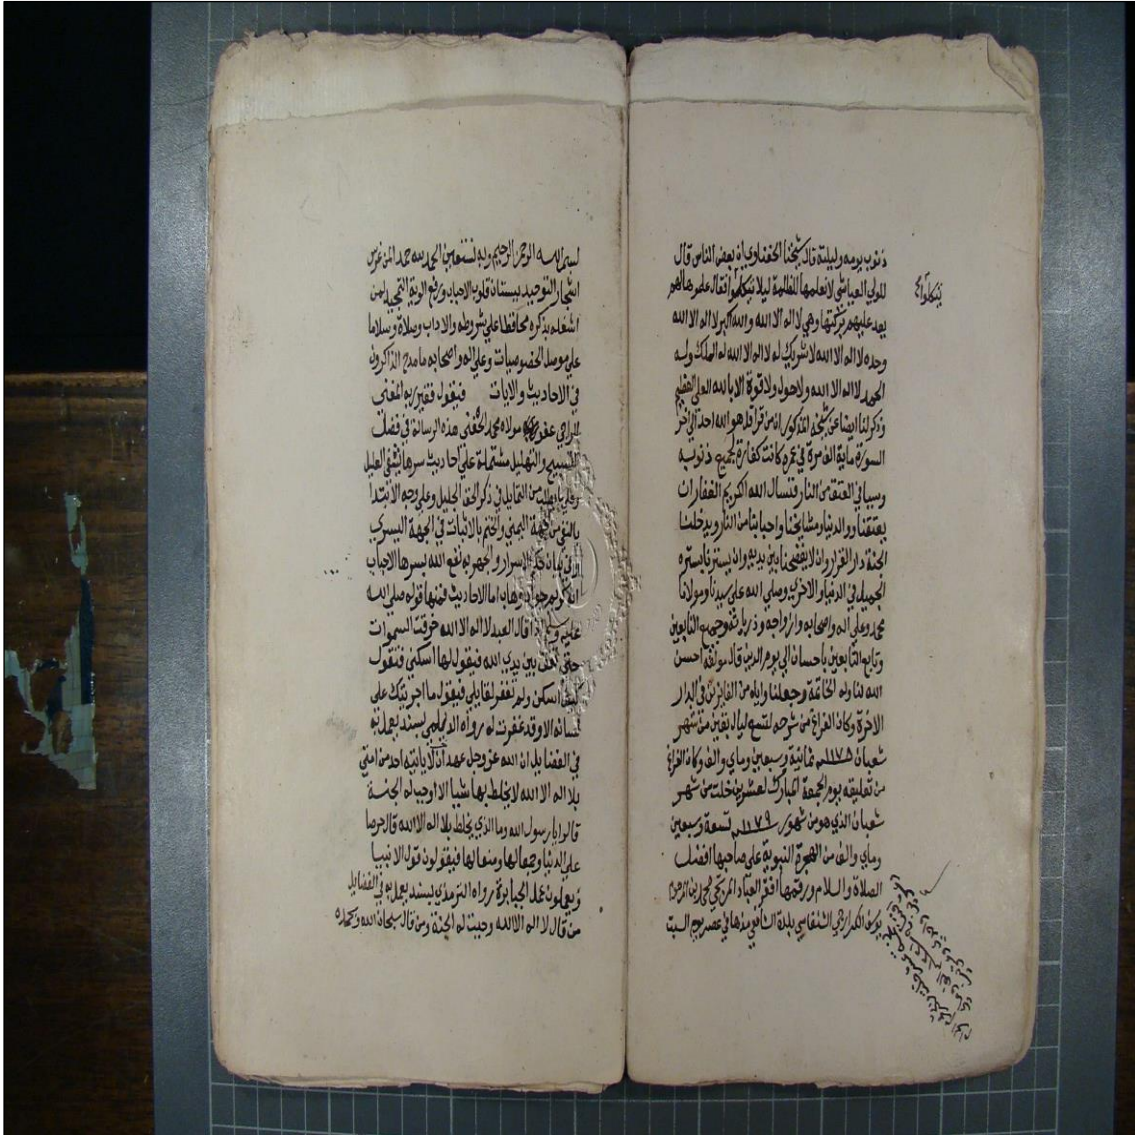 ذنوب يومه وليلة قال شيخنا الحفناوي ان بعض الناس قال
للولي العياشي لا نعلمها للظلمة ليلا يتكلموا فقال علموها لهم
يتكلوا صح
يعد عليهم بركتها وهي لا اله الا الله والله اكبر لا اله الا الله
وحده لا اله الا الله لا شريك له لا اله الا الله له الملك وله
الحمد لا اله الا الله ولا حول ولا قوة الا بالله العلي العظيم
وذكر لنا ايضا عن شيخه المذكور انه من قرا قل هو الله احد الي اخر
السورة ماية الف مرة في عمره كانت كفارة لجميع ذنوبه
وسببا في العتق من النار فنسال الله الكريم الغفار ان
يعتقنا ووالدينا ومشايخنا واحبابنا من النار ويدخلنا
الجنة دار القرار وان لا يفضحنا بين يديه وان يسترنا بستره
الجميل في الدنيا والاخرة وصلي الله علي سيدنا ومولانا
محمد وعلي اله واصحابه وازواجه وذرياته وجميع التابعين
وتابع التابعين باحسان الي يوم الدين قال مولفه احسن
الله لنا وله الخاتمة وجعلنا واياه من الفايزين في الدار
الاخرة وكان الفراغ من شرحه لتسع ليال بقين من شهر
شعبان ١١٧٨ ثمانية وسبعين وماي والف وكان الفراغ
من تعليقه يوم الجمعة المبارك لعشرين خلت من شهر
شعبان الذي هو من شهور ١١٧٩ تسعة وسبعين
وماي والف من الهجرة النبوية علي صاحبها افضل
الصلاة والسلام ورقمها افقر العباد المرتجي محمد بن المرحوم
يوسف الشنفاسي بلدة الشافعي مذهبا في عصر يوم السبت
بسم الله الرحمن الرحيم وبه نستعين الحمد لله حمدا لمن غرس
اشجار التوحيد ببستان قلوب الاحباب ورفع الوية التمجيد لمن
اشغله بذكره محافظا علي شروطه والاداب وصلاة وسلاما
علي موصل الخصوصيات وعلي اله واصحابه ما مدح الذاكرون
في الاحاديث والايات فيقول فقير ربه المغني
الراجي عفو مولاه محمد الحفني هذه الرسالة في فضل
التسبيح والتهليل مشتملة علي احاديث سرها يشفي العليل
وفي ما يطلب من التمايل في ذكر الحق الجليل وعلي وجه الابتدا
بالنفي من جهة اليمني والختم بالاثبات في الجهة اليسري
وفي بيان حكم الاسرار والجهر به نفع الله بسرها الاحباب
انه كريم جواد وهاب اما الاحاديث فمنها قوله صلي الله
عليه وسلم اذا قال العبد لا اله الا الله خرقت السموات
حتي تقف بين يدي الله فيقول لها اسكني فتقول
كيف اسكن ولم تغفر لقايلي فيقول ما اجريتك علي
لسانه الا وقد غفرت له رواه الديلمي بسند يعمل به
في الفضايل ان الله عز وجل عهد ان لا ياتيه احد من امتي
بلا اله الا الله لا يخلط بها شيا الا اوجب له الجنة
قالوا يا رسول الله وما الذي يخلط بلا اله الا الله قال حرصا
علي الدنيا وجمعا لها ومنعا لها فيقولون قول الانبيا
ويعملون عمل الجبابرة رواه الترمذي بسند يعمل به في الفضايل
من قال لا اله الا الله وجبت له الجنة ومن قال سبحان الله وبحمده